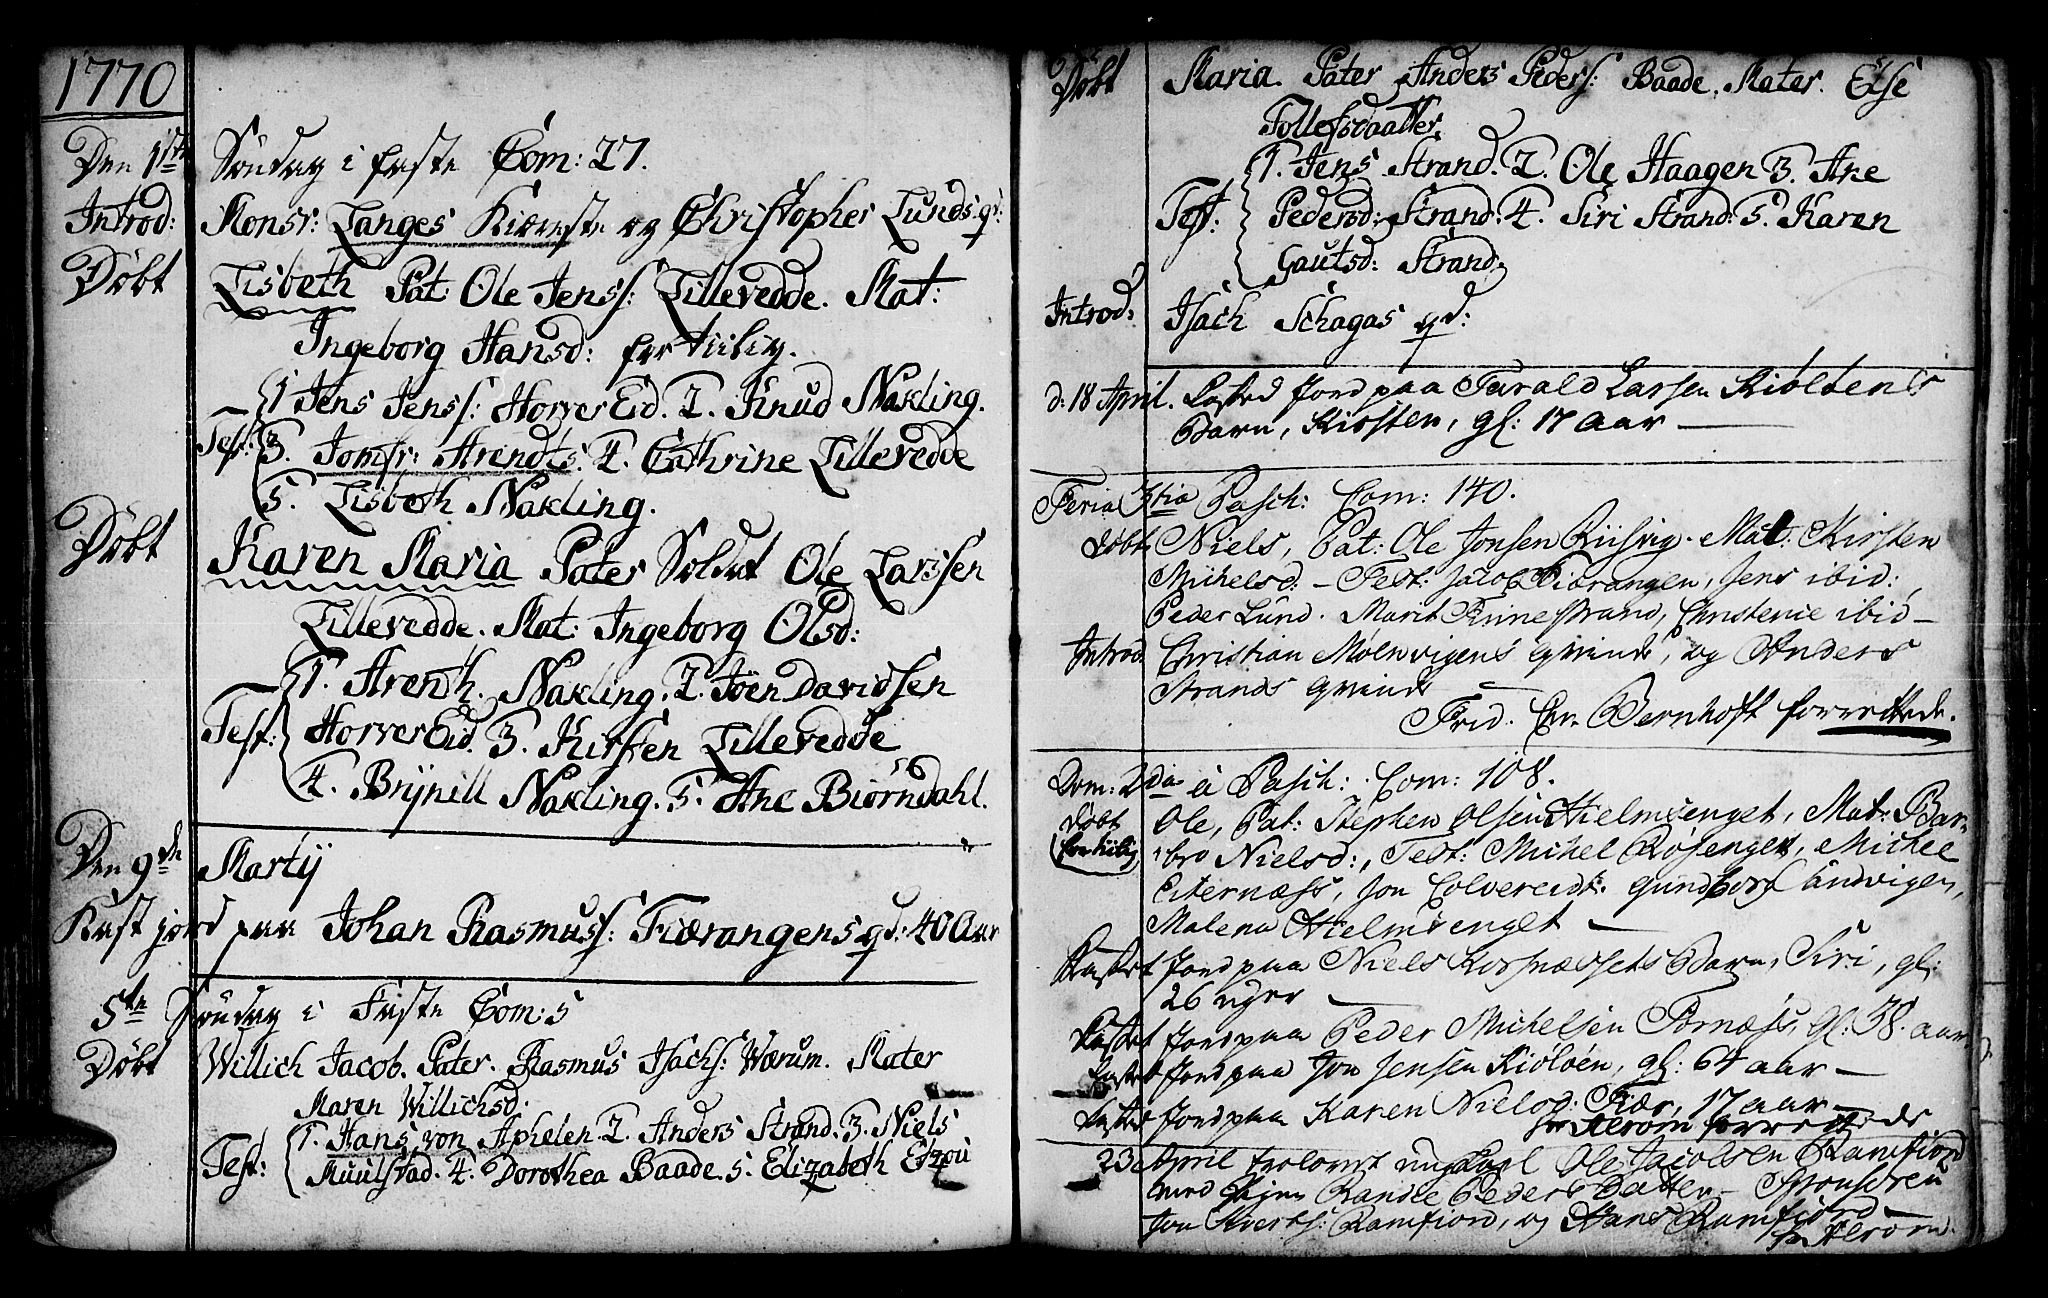 1770
Den 1ste Søndag i Faste Com: 27.
Introd: Monsr: Langes Kiæreste og Christopher Lunds qv:
Døbt Lisbeth Pat: Ole Jens: Lillevedde. Mat:
Ingeborg Hansd: for tiilig.
1 Jens Jens: Horver Eid. 2. Knud Nakling.
Test: 3. Jomfr: Arendts. 4. Cathrine Lillevedde
5. Lisbeth Nakling.
Døbt Karen Maria Pater Soldat Ole Larssen
Lillevedde. Mat: Ingeborg Olsd:
1. Arenth. Nakling. 2. Joen Davidsen
Test: Horver Eid. 3. Kirsten Lillevedde
4. Brynill Nakling. 5. Ane Biørndahl.
Den 9de Martij
Kast jord paa Johan Rasmuss: Fiærangens qd: 40 Aar
5te Søndag i Faste Com: 5
Døbt Willich Jacob. Pater. Rasmus Isachs: Wærum. Mater
Maren Willichsd.
1. Hans von Aphelen. 2. Anders Strand. 3. Niels
Test: Muulstad. 4. Dorothea Baade. 5. Elizabeth
Døbt Maria. Pater Anders Peders: Baade. Mater. Else
Tollefsdaatter.
1. Jens Strand. 2. Ole Haagen 3. Ane
Test: Pedersd: Strand: 4. Siri Strand: 5. Karen
Gautsd: Strand.
Introd: Isach Schagas qd:
d: 18 April. Kasted Jord paa Tarald Larsen Kiøltens
Barn, Kirsten, gl: 17 Aar —
Feria 3tia Pasch: Com: 140.
Døbt Niels, Pat: Ole Jonsen Riisvig. Mat: Kirsten
Michelsd: – Test: Jacob Fiærangen, Jens ibid:
Peder Lund. Marit Finnestrand, Christence ibid –
Introd. Christian Molwvigens qvinde, og Anders
Strands qvinde —
Frid. Chr. Bernhoft forrettede.
Dom: 2da a Pasch: Com: 108.
Døbt Ole, Pat: Stephen Olsen Hielmsenget, Mat: Bar-
(for tiilig) bro Nielsd:, Test: Michel Røsenget, Michel
Eiternæss, Jon Colvereidt. Gundborg Sandvigen,
Malena Hielmsenget —
Kastet Jord paa Niels Korsnæssets Barn, Siri, gl:
26 uger —
Kastet Jord paa Peder Michelsen Hornæss, gl: 38. aar
Kastet Jord paa Jon Jensen Kioløen, gl: 64 aar —
Kastet Jord paa Karen Nielsd: Fiær, 17 aar —
Hr Alrom forrettede
23 April troloved ungkarl Ole Jacobsen Ramfiord
med Pigen Randee Peders Datter – Sponsoren
Jon Siverts: Ramfiord, og Hans Ramfiord —
Hr Alrom.